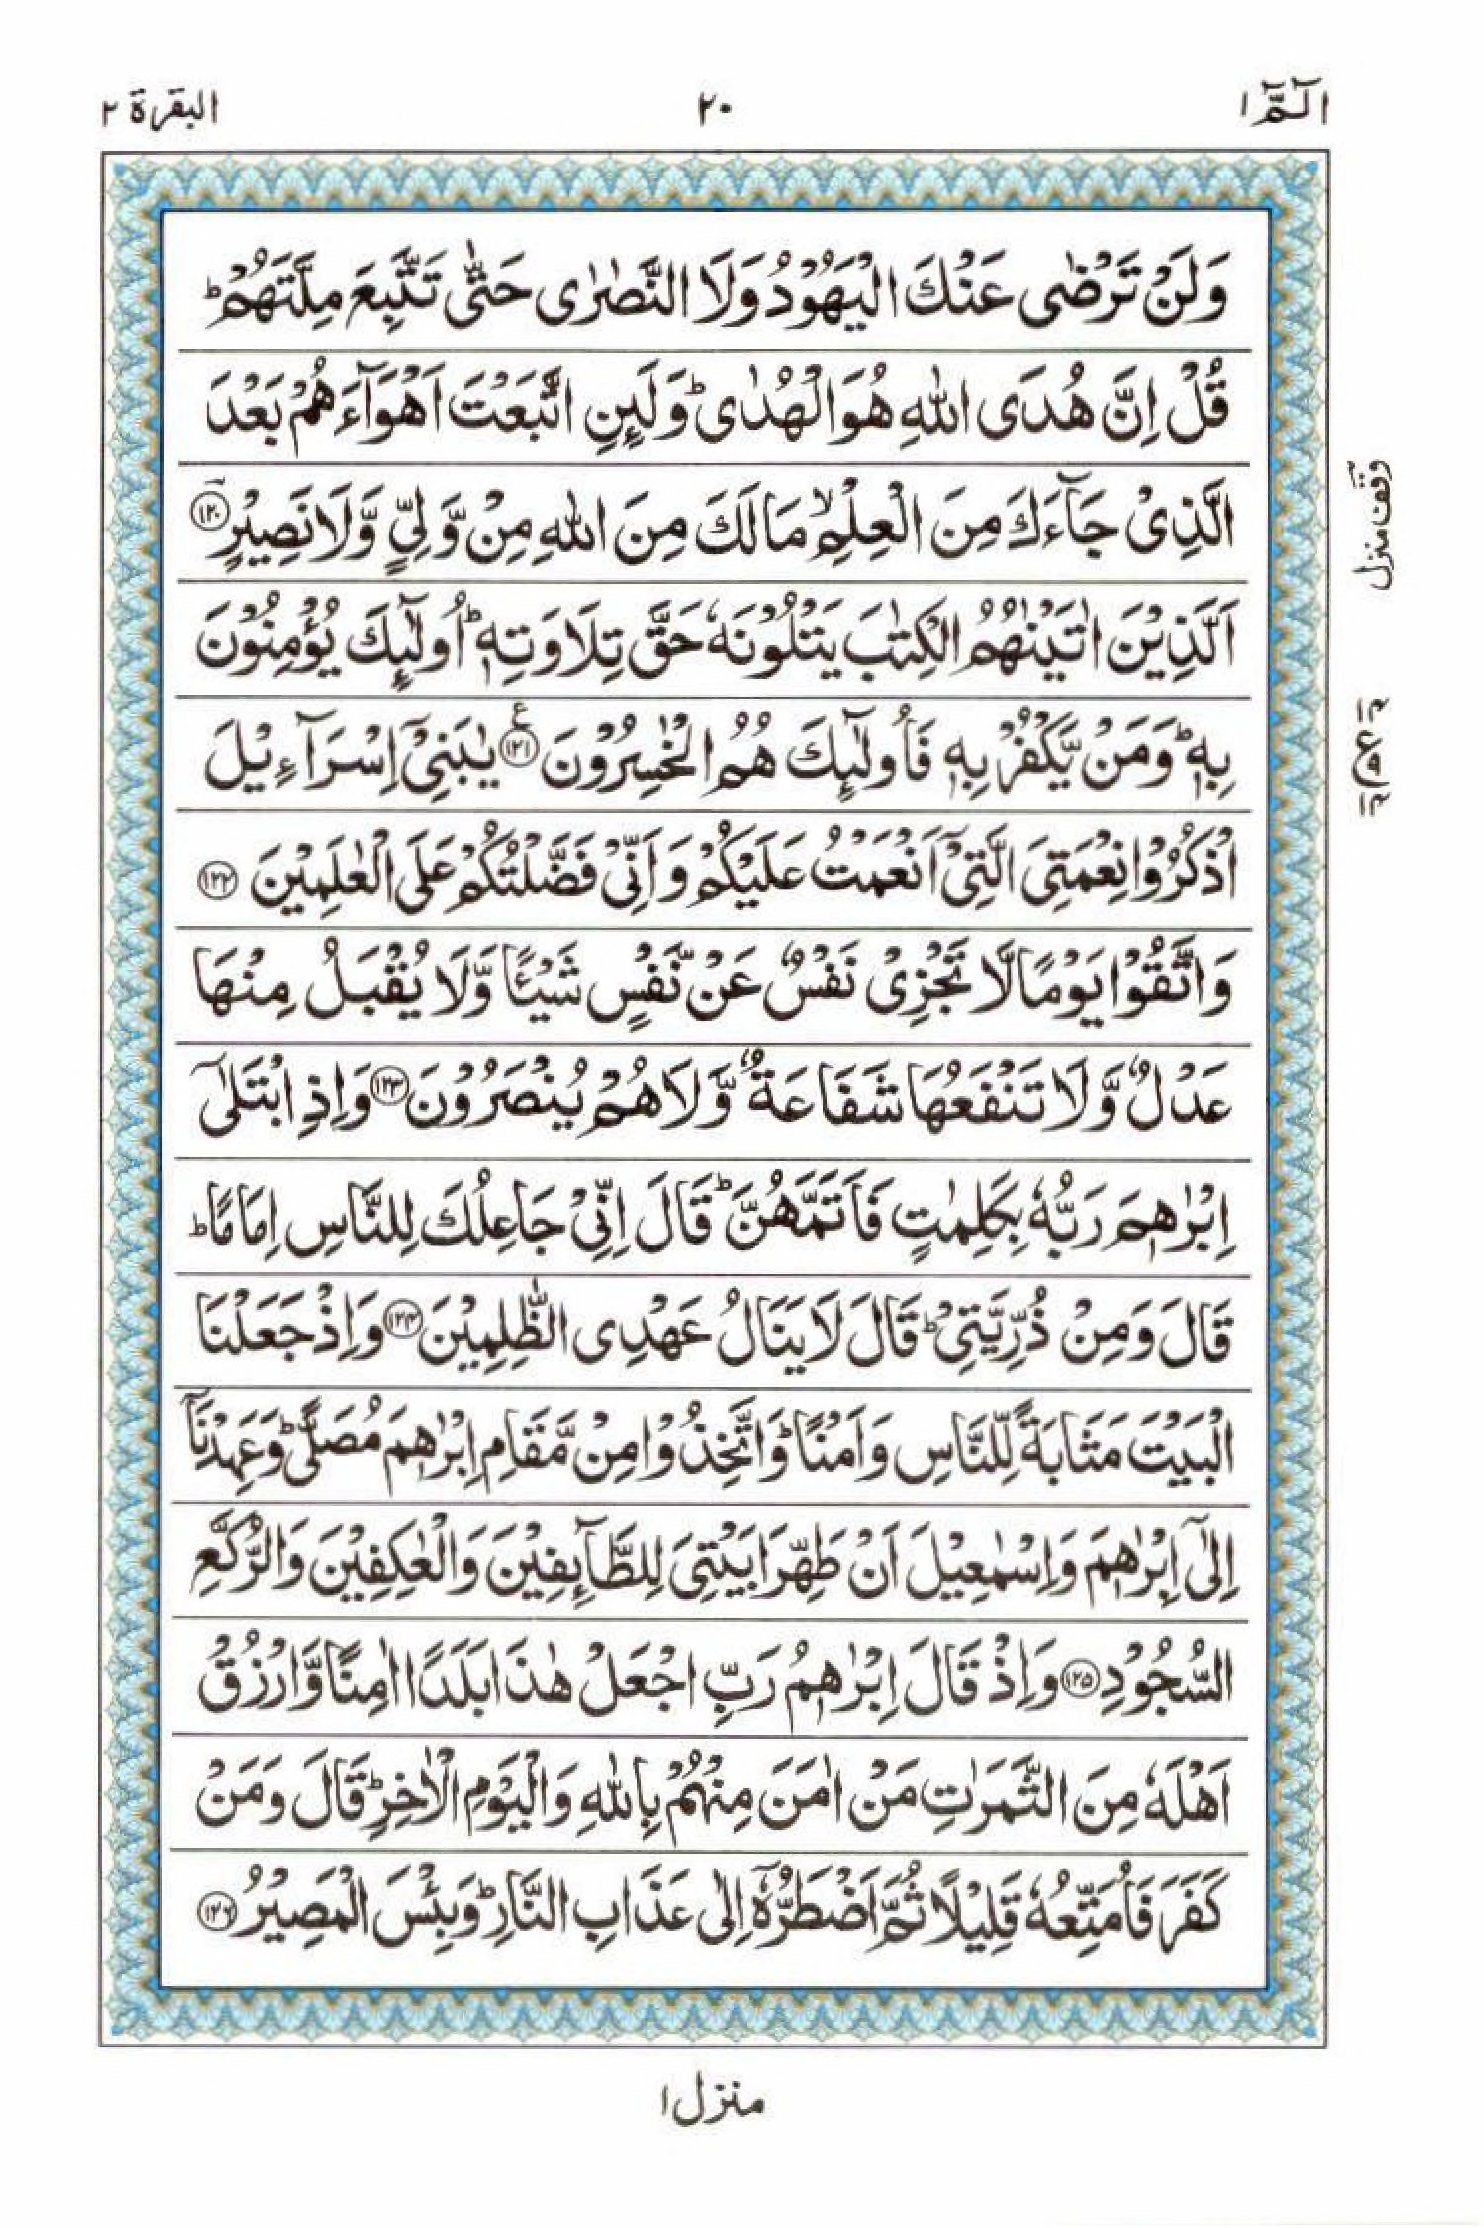 الٓـمّٓ ١
٢٠
البقرة ٢
وَلَنْ تَرْضٰى عَنْكَ الْيَهُوْدُ وَلَا النَّصٰرٰى حَتّٰى تَتَّبِعَ مِلَّتَهُمْ ؕ
قُلْ اِنَّ هُدَى اللّٰهِ هُوَ الْهُدٰى ؕ وَلَىِٕنِ اتَّبَعْتَ اَهْوَآءَهُمْ بَعْدَ
الَّذِىْ جَآءَكَ مِنَ الْعِلْمِ ۙ مَا لَكَ مِنَ اللّٰهِ مِنْ وَّلِىٍّ وَّلَا نَصِيْرٍ ؔ ﴿١٢٠﴾
اَلَّذِيْنَ اٰتَيْنٰهُمُ الْكِتٰبَ يَتْلُوْنَهٗ حَقَّ تِلَاوَتِهٖ ؕ اُولٰٓىِٕكَ يُؤْمِنُوْنَ
بِهٖ ؕ وَمَنْ يَّكْفُرْ بِهٖ فَاُولٰٓىِٕكَ هُمُ الْخٰسِرُوْنَ ﴿١٢١﴾ ع يٰبَنِىْٓ اِسْرَآءِيْلَ
اذْكُرُوْا نِعْمَتِىَ الَّتِىْٓ اَنْعَمْتُ عَلَيْكُمْ وَاَنِّىْ فَضَّلْتُكُمْ عَلَى الْعٰلَمِيْنَ ﴿١٢٢﴾
وَاتَّقُوْا يَوْمًا لَّا تَجْزِىْ نَفْسٌ عَنْ نَّفْسٍ شَيْـًٔا وَّلَا يُقْبَلُ مِنْهَا
عَدْلٌ وَّلَا تَنْفَعُهَا شَفَاعَةٌ وَّلَا هُمْ يُنْصَرُوْنَ ﴿١٢٣﴾ وَاِذِ ابْتَلٰٓى
اِبْرٰهٖمَ رَبُّهٗ بِكَلِمٰتٍ فَاَتَمَّهُنَّ ؕ قَالَ اِنِّىْ جَاعِلُكَ لِلنَّاسِ اِمَامًا ؕ
قَالَ وَمِنْ ذُرِّيَّتِىْ ؕ قَالَ لَا يَنَالُ عَهْدِى الظّٰلِمِيْنَ ﴿١٢٤﴾ وَاِذْ جَعَلْنَا
الْبَيْتَ مَثَابَةً لِّلنَّاسِ وَاَمْنًا ؕ وَاتَّخِذُوْا مِنْ مَّقَامِ اِبْرٰهٖمَ مُصَلًّى ؕ وَعَهِدْنَآ
اِلٰٓى اِبْرٰهٖمَ وَاِسْمٰعِيْلَ اَنْ طَهِّرَا بَيْتِىَ لِلطَّآىِٕفِيْنَ وَالْعٰكِفِيْنَ وَالرُّكَّعِ
السُّجُوْدِ ﴿١٢٥﴾ وَاِذْ قَالَ اِبْرٰهٖمُ رَبِّ اجْعَلْ هٰذَا بَلَدًا اٰمِنًا وَّارْزُقْ
اَهْلَهٗ مِنَ الثَّمَرٰتِ مَنْ اٰمَنَ مِنْهُمْ بِاللّٰهِ وَالْيَوْمِ الْاٰخِرِ ؕ قَالَ وَمَنْ
كَفَرَ فَاُمَتِّعُهٗ قَلِيْلًا ثُمَّ اَضْطَرُّهٗٓ اِلٰى عَذَابِ النَّارِ ؕ وَبِئْسَ الْمَصِيْرُ ﴿١٢٦﴾
وقف منزل
منزل ١